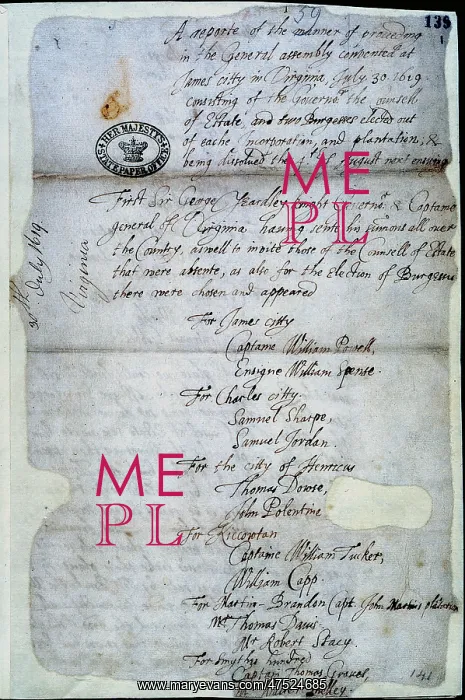 59
139
A reporte of the manner of proceeding
in the General assembly convented at
James citty in Virginia, July 30. 1619.
consisting of the Governor, the counsell
of Estate, and two Burgesses elected out
of eache incorporation, and plantation, &
being dissolved the of August next ensuing
HER MAJESTY'S
STATE PAPER OFFICE
First Sir George Yeardley Knight Governor & Captaine
general of Virginia having sente his sumons all over
the Country, aswell to invite those of the Counsell of Estate
that were absente, as also for the election of Burgesses
there were chosen and appeared
30th July 1619
Virginia
For James citty
Captaine William Powell,
Ensigne William Spense.
For Charles citty.
Samuel Sharpe,
Samuel Jordan.
For the citty of Henricus
Thomas Dowse,
John Polentine
For Kiccowtan
Captaine William Tucker,
William Capp.
For Martin-Brandon Capt. John Martins plantation
Mr Thomas Davis.
Mr Robert Stacy.
For Smythes hundred
Captain Thomas Graves,
141
ME
PL
ME
PL
www.maryevans.com/47524685